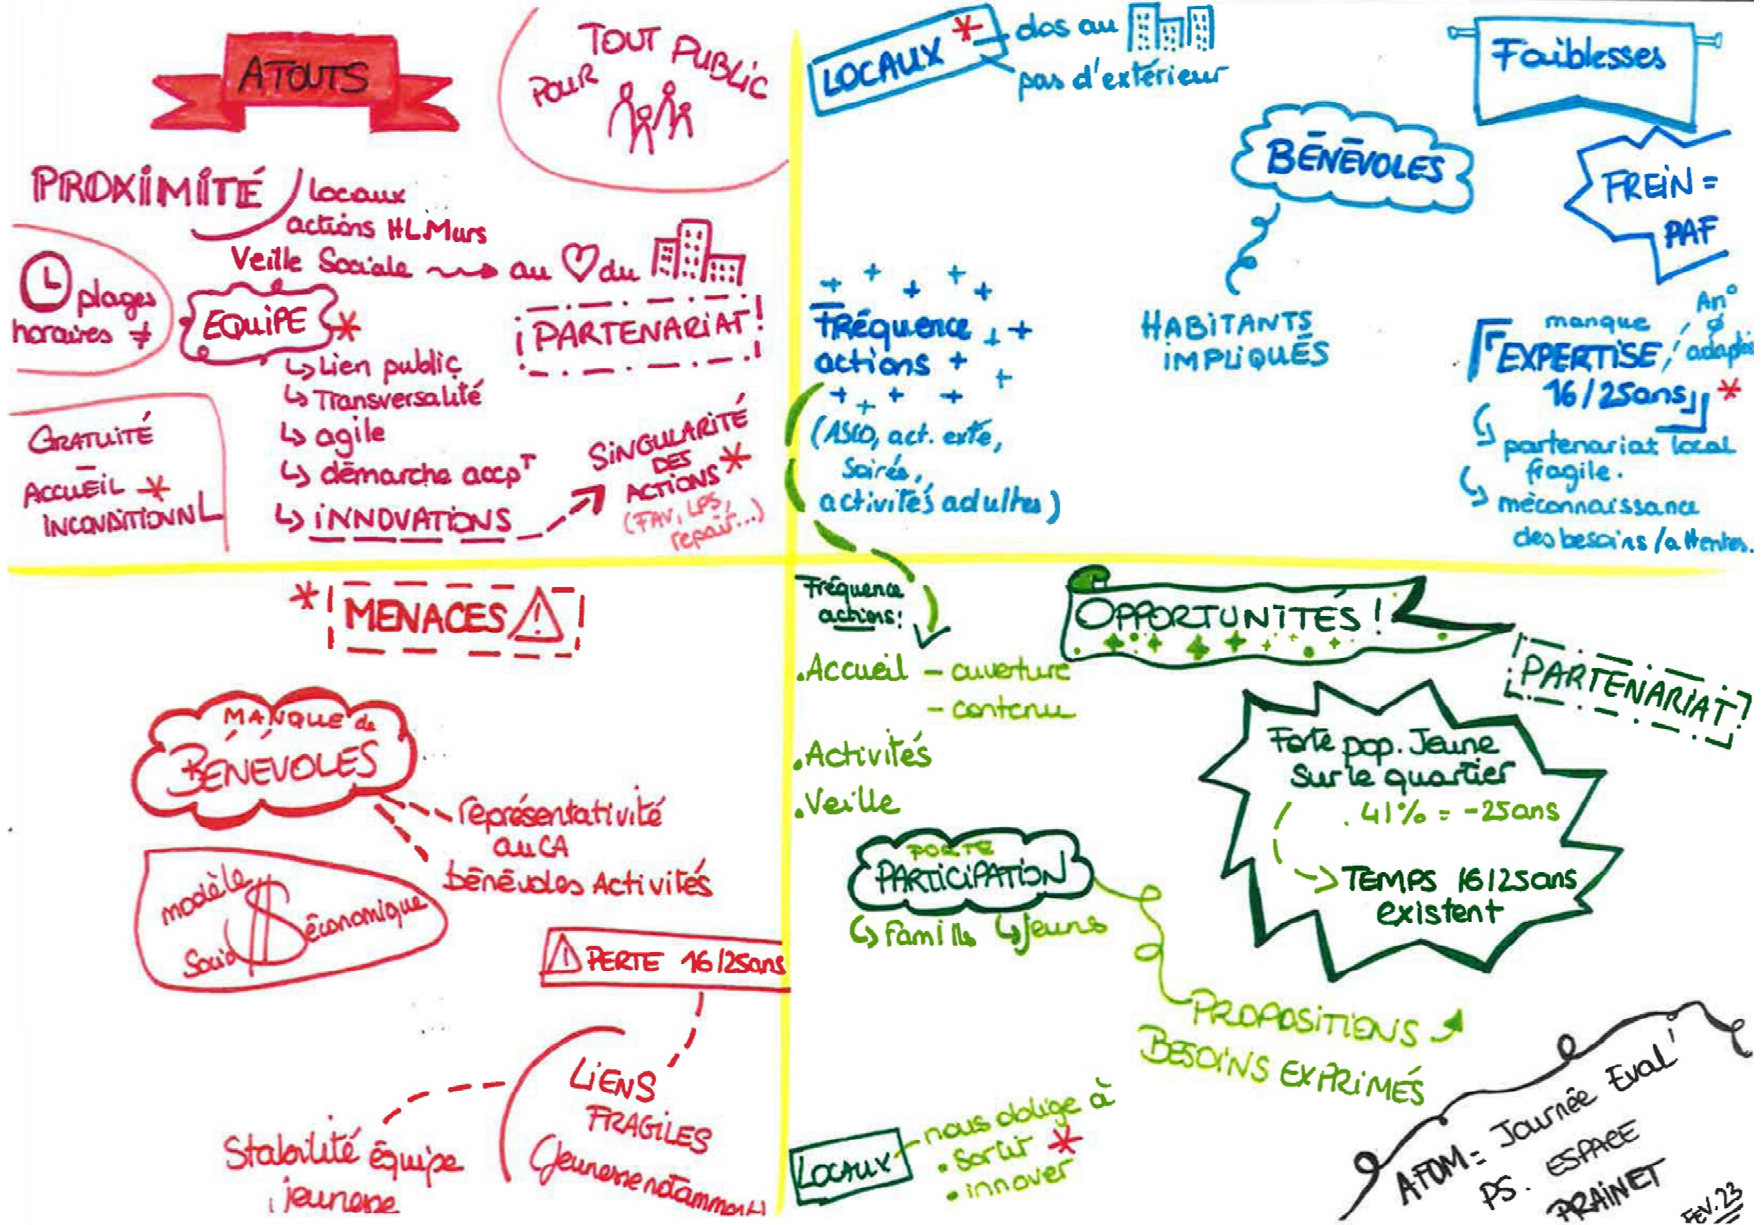 ATOUTS
POUR TOUT PUBLIC
PROXIMITÉ
locaux
actions HL.Murs
Veille Sociale
au
du
plages
horaires ≠
EQUIPE *
↳ Lien public
↳ Transversalité
↳ agile
↳ démarche accpT
↳ INNOVATIONS
PARTENARIAT!
SINGULARITÉ
DES
ACTIONS *
(FAV, LPS,
repair...)
GRATUITÉ
ACCUEIL *
INCONDITIONNL
LOCAUX *
dos au
pas d'extérieur
Faiblesses
BÉNÉVOLES
HABITANTS
IMPLIQUÉS
FREIN =
PAF
Fréquence
actions
(ASCO, act. exté,
Soirés,
activités adultes)
manque
EXPERTISE
16/25ans *
An°
ø
↳ partenariat local
fragile.
↳ méconnaissance
des besoins/attentes.
* MENACES
MANQUE de
BÉNÉVOLES
représentativité
au CA
bénévoles Activités
modèle
Socio
$
économique
PERTE 16/25ans
LIENS
FRAGILES
(Jeunesse notamment)
Stabilité équipe
jeunesse
OPPORTUNITÉS!
Fréquence
actions:
.Accueil - ouverture
- contenu
.Activités
.Veille
PARTENARIAT!
Forte pop. Jeune
Sur le quartier
. 41% = -25ans
TEMPS 16/25ans
existent
FORTE
PARTICIPATION
↳ Famills ↳ Jeuns
PROPOSITIONS
BESOINS EXPRIMÉS
LOCAUX
nous oblige à
. sortir *
. innover
AFOM = Journée Eval'
PS. ESPACE
PRAINET
FEV. 23